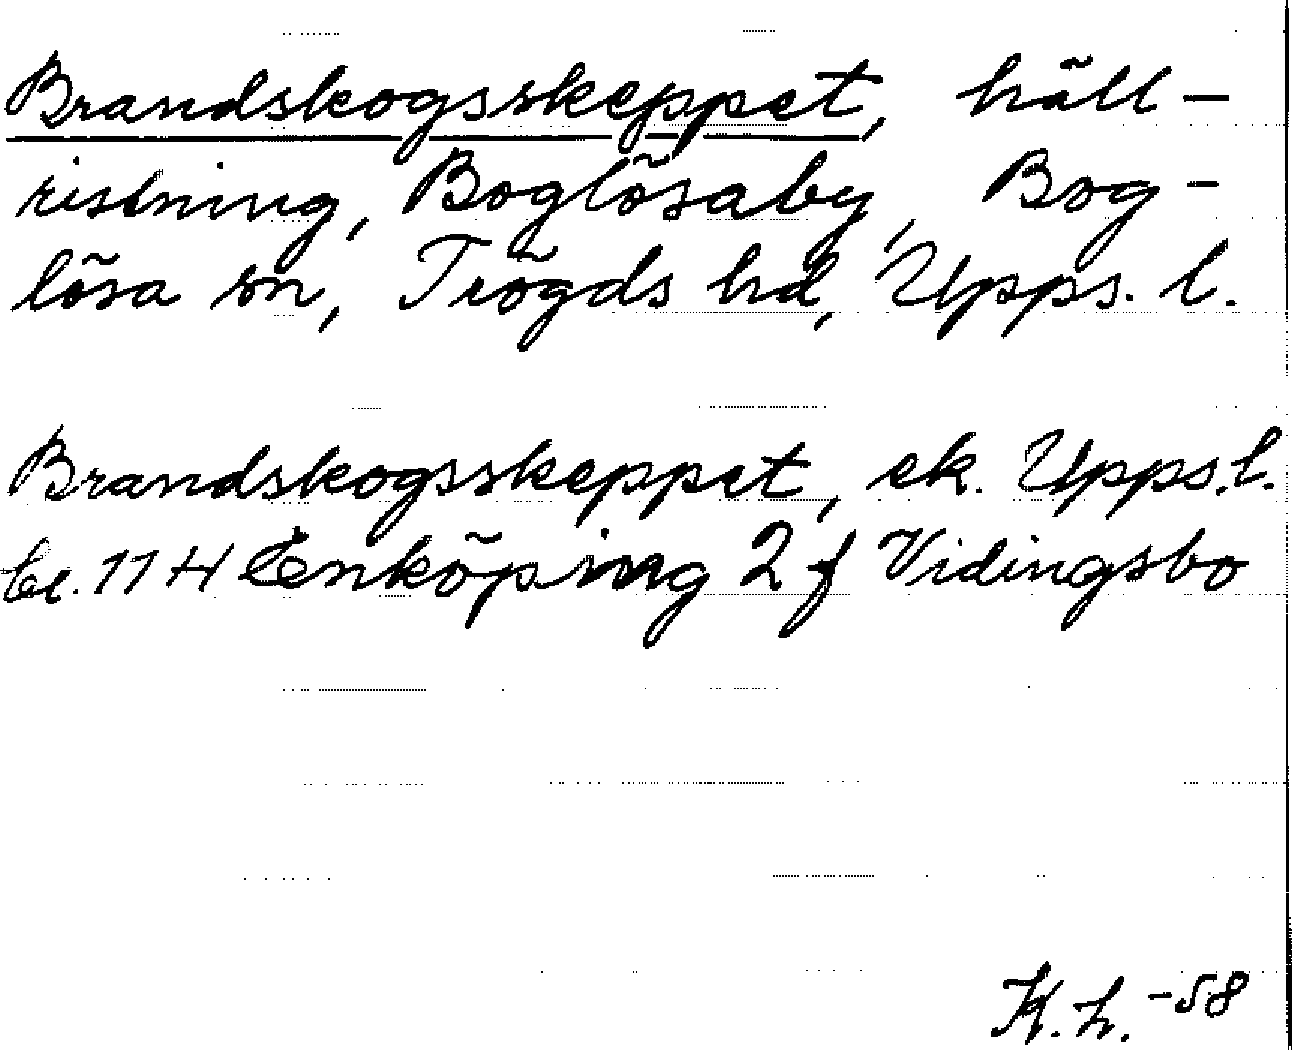 Brandskogsskeppet, häll-
ristning, Boglösaby, Bog-
lösa sn, Trögds hd, Upps. l.
Brandskogsskeppet, ek. Upps.l.
bl. 11 H Enköping 2 f Vidingsbo
K.L. -58